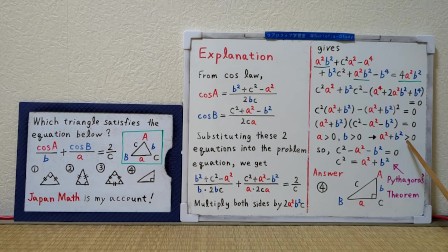 Which triangle satisfies the
equation below ?
cosA/b + cosB/a = 2/c
A
c b
B a C
① ② ③ ④
Japan Math is my account !
Explanation
From cos law,
cosA = (b²+c²-a²)/2bc
cosB = (c²+a²-b²)/2ca
Substituting these 2
equations into the problem
equation, we get
(b²+c²-a²)/(b·2bc) + (c²+a²-b²)/(a·2ca) = 2/c
Multiply both sides by 2a²b²c
gives
a²b²+c²a²-a⁴
+b²c²+a²b²-b⁴ = 4a²b²
c²a²+b²c²-(a⁴+2a²b²+b⁴) = 0
c²(a²+b²)-(a²+b²)² = 0
(a²+b²)(c²-a²-b²) = 0
a>0, b>0 → a²+b²>0
so, c²-a²-b²=0
c² = a²+b²
Pythagoras
Theorem
Answer
④
A
c b
B a C